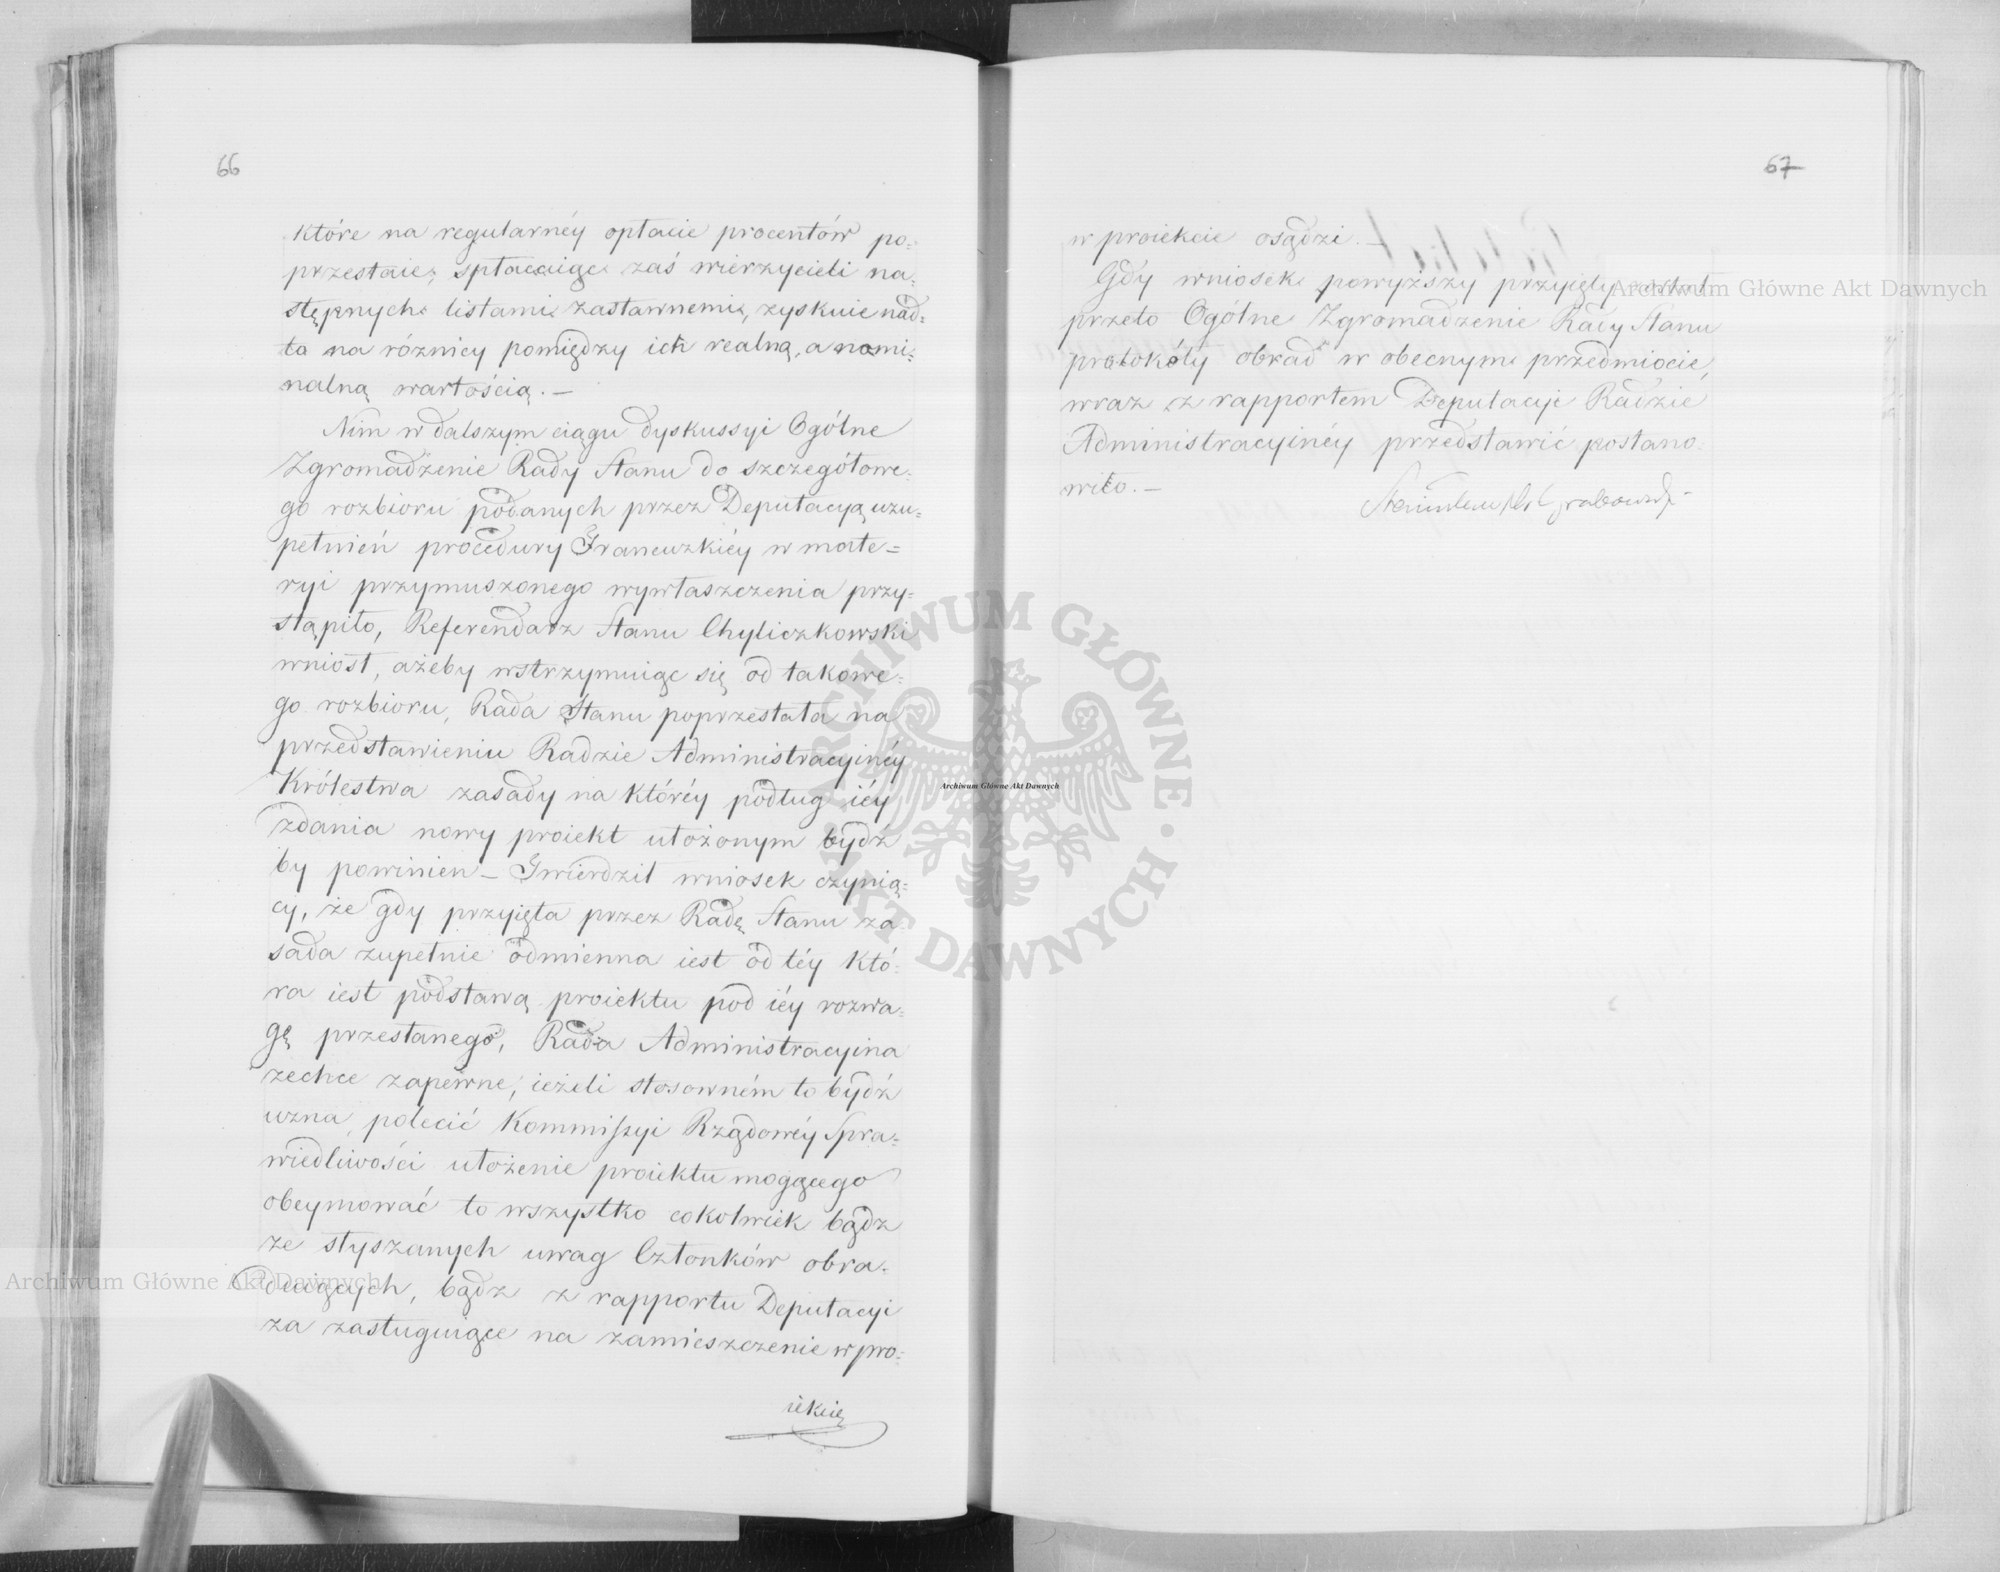 66
które na regularnéy opłacie procentów po=
przestaie, spłacaiąc zaś wierzycieli na=
stępnych listami zastawnemi, zyskuie nad=
to na różnicy pomiędzy ich realną, a nomi=
nalną wartością. —
Nim w dalszym ciągu dyskussyi Ogólne
Zgromadzenie Rady Stanu do szczegółowe=
go rozbioru podanych przez Deputacyą uzu=
pełnień procedury Francuzkiéy w mate=
ryi przymuszonego wywłaszczenia przy=
stąpiło, Referendarz Stanu Chyliczkowski
wniósł, ażeby wstrzymuiąc się od takowe=
go rozbioru, Rada Stanu poprzestała na
przedstawieniu Radzie Administracyinéy
Królestwa zasady na któréy podług iéy
zdania nowy proiekt ułożonym bydź
by powinien — Twierdził wniosek czynią=
cy, że gdy przyięta przez Radę Stanu za=
sada zupełnie odmienna iest od téy któ=
ra iest podstawą proiektu pod iéy rozwa=
gę przesłanego, Rada Administracyina
zechce zapewne, ieżeli stosowném to bydź
uzna, polecić Kommissyi Rządowéy Spra=
wiedliwości ułożenie proiektu mogącego
obeymować to wszystko cokolwiek bądź
ze słyszanych uwag Członków obra=
duiących, bądź z rapportu Deputacyi
za zasługuiące na zamieszczenie w pro=
iekcie
67
w proiekcie osądzi. —
Gdy wniosek powyższy przyięty został
przeto Ogólne Zgromadzenie Rady Stanu
protokóły obrad w obecnym przedmiocie,
wraz z rapportem Deputacyi Radzie
Administracyinéy przedstawić postano=
wiło. —
Stanisław Hr Grabowski
Archiwum Główne Akt Dawnych
Archiwum Główne Akt Dawnych
Archiwum Główne Akt Dawnych
ARCHIWUM GŁÓWNE · AKT DAWNYCH ·